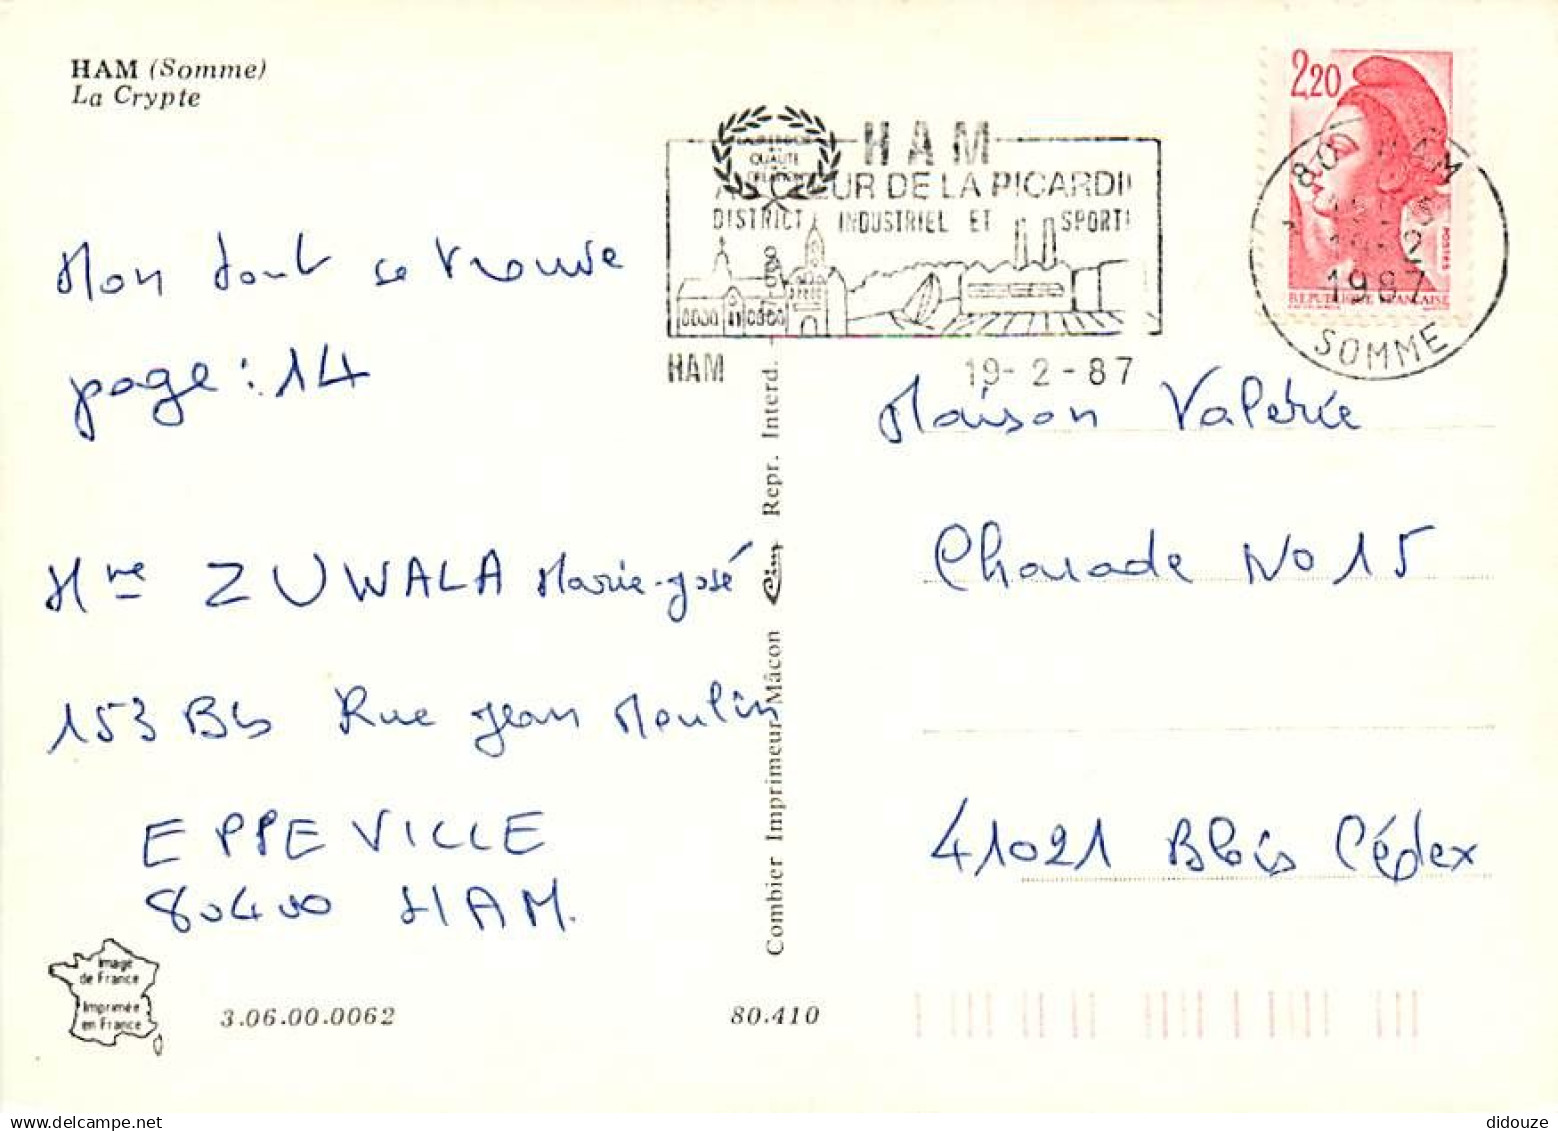 HAM (Somme)
La Crypte
2,20
HAM
QUALITE
CREATION
AU CŒUR DE LA PICARDI
DISTRICT INDUSTRIEL ET SPORTI
HAM 19-2-87
80 HAM
19-2
1987
SOMME
POSTES
REPUBLIQUE FRANCAISE
Mon tout se trouve
page : 14
Mme ZUWALA Marie-José
153 Bis Rue Jean Moulin
EPPEVILLE
80400 HAM.
Combier Imprimeur Mâcon Cim Repr. Interd.
Maison Valérie
Charade No 15
41021 Blois Cédex
Image
de France
Imprimée
en France
3.06.00.0062
80.410
didouze